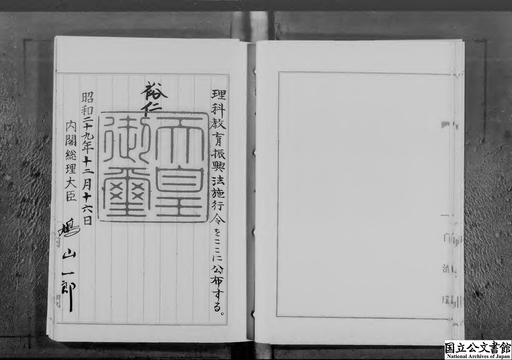 理科教育振興法施行令をここに公布する。
裕仁
天皇
御璽
昭和二十九年十二月十六日
内閣総理大臣
鳩山一郎
国立公文書館
National Archives of Japan